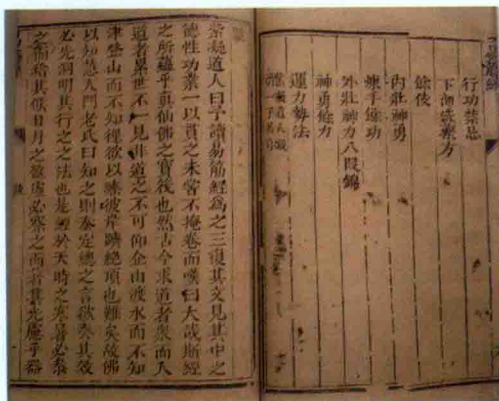 行功禁忌
下部洗藥方
餘伎
內壯神勇
煉手餘功
外壯神力八段錦
神勇餘力
運力勢法
紫凝道人曰予讀易筋經為之三復其文見其中之
德性功業一以貫之未嘗不掩卷而嘆曰大哉斯經
之所蘊乎真仙佛之寶筏也然古今求道者眾而入
道者累世不一見非道之不可仰企山渡水而不知
津登山而不知徑欲以臻彼岸躋絕頂也難矣故佛
以知慧入門老氏曰知之則泰定總之言欲奏其效
必先洞明其行之之法也是經於天時之寒暑必
之其候日月之盈虛必察之而者其先應乎器